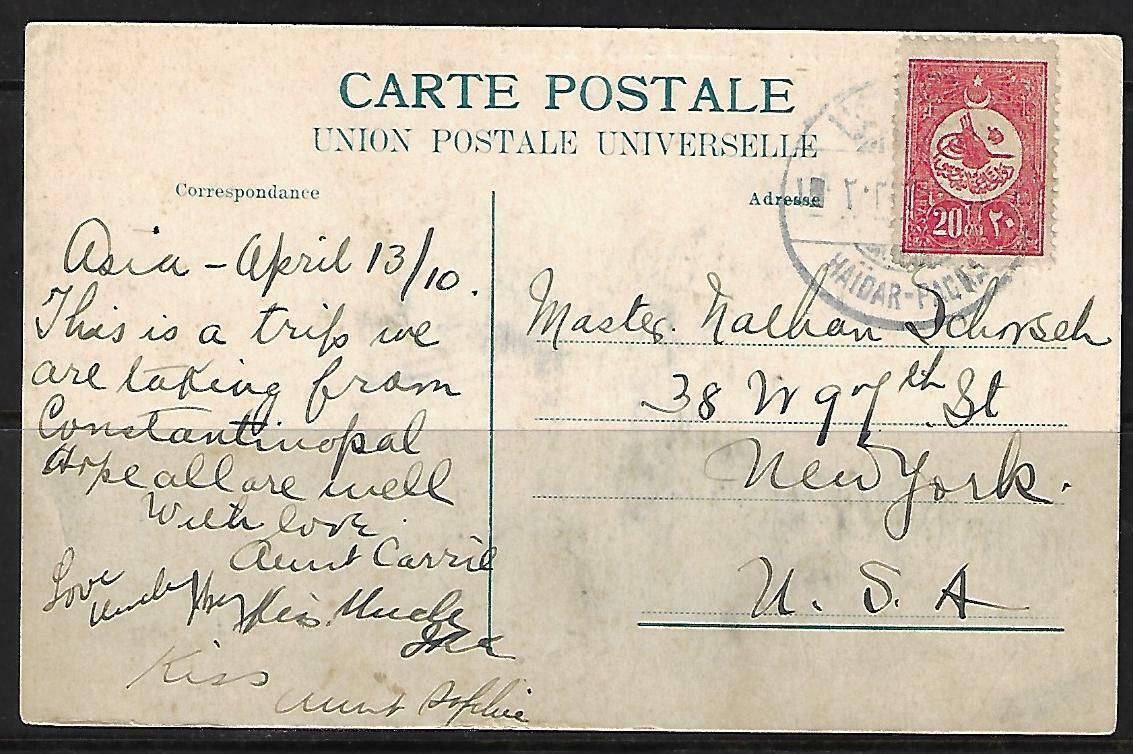 CARTE POSTALE
UNION POSTALE UNIVERSELLE
Correspondance
Adresse
20 ٢٠
HAIDAR-PACHA
Asia - April 13/10.
This is a trip we
are taking from
Constantinopal
Hope all are well
With love
Aunt Carrie
Love
Uncle
Kiss Uncle
Ike
Kiss
Aunt Sophie
Master Nathan Schorsch
38 W 97th St
New York.
U. S. A